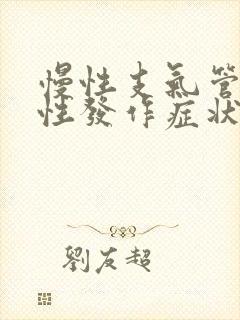 慢性支氣管
性發作症狀
劉友超